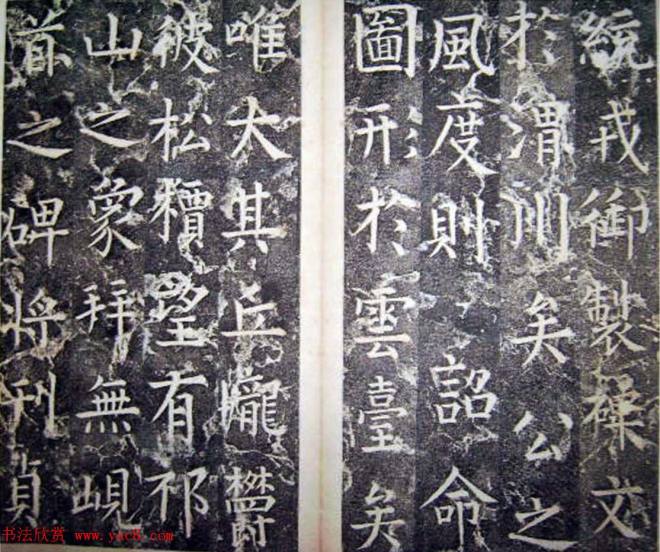 統戎御製襍文
於渭川矣公之
風度則詔命
圖形於雲臺矣
唯大其丘壠欝
彼松檟望有祁
山之象拜無峴
首之碑將刊貞
书法欣赏 www.yac8.com